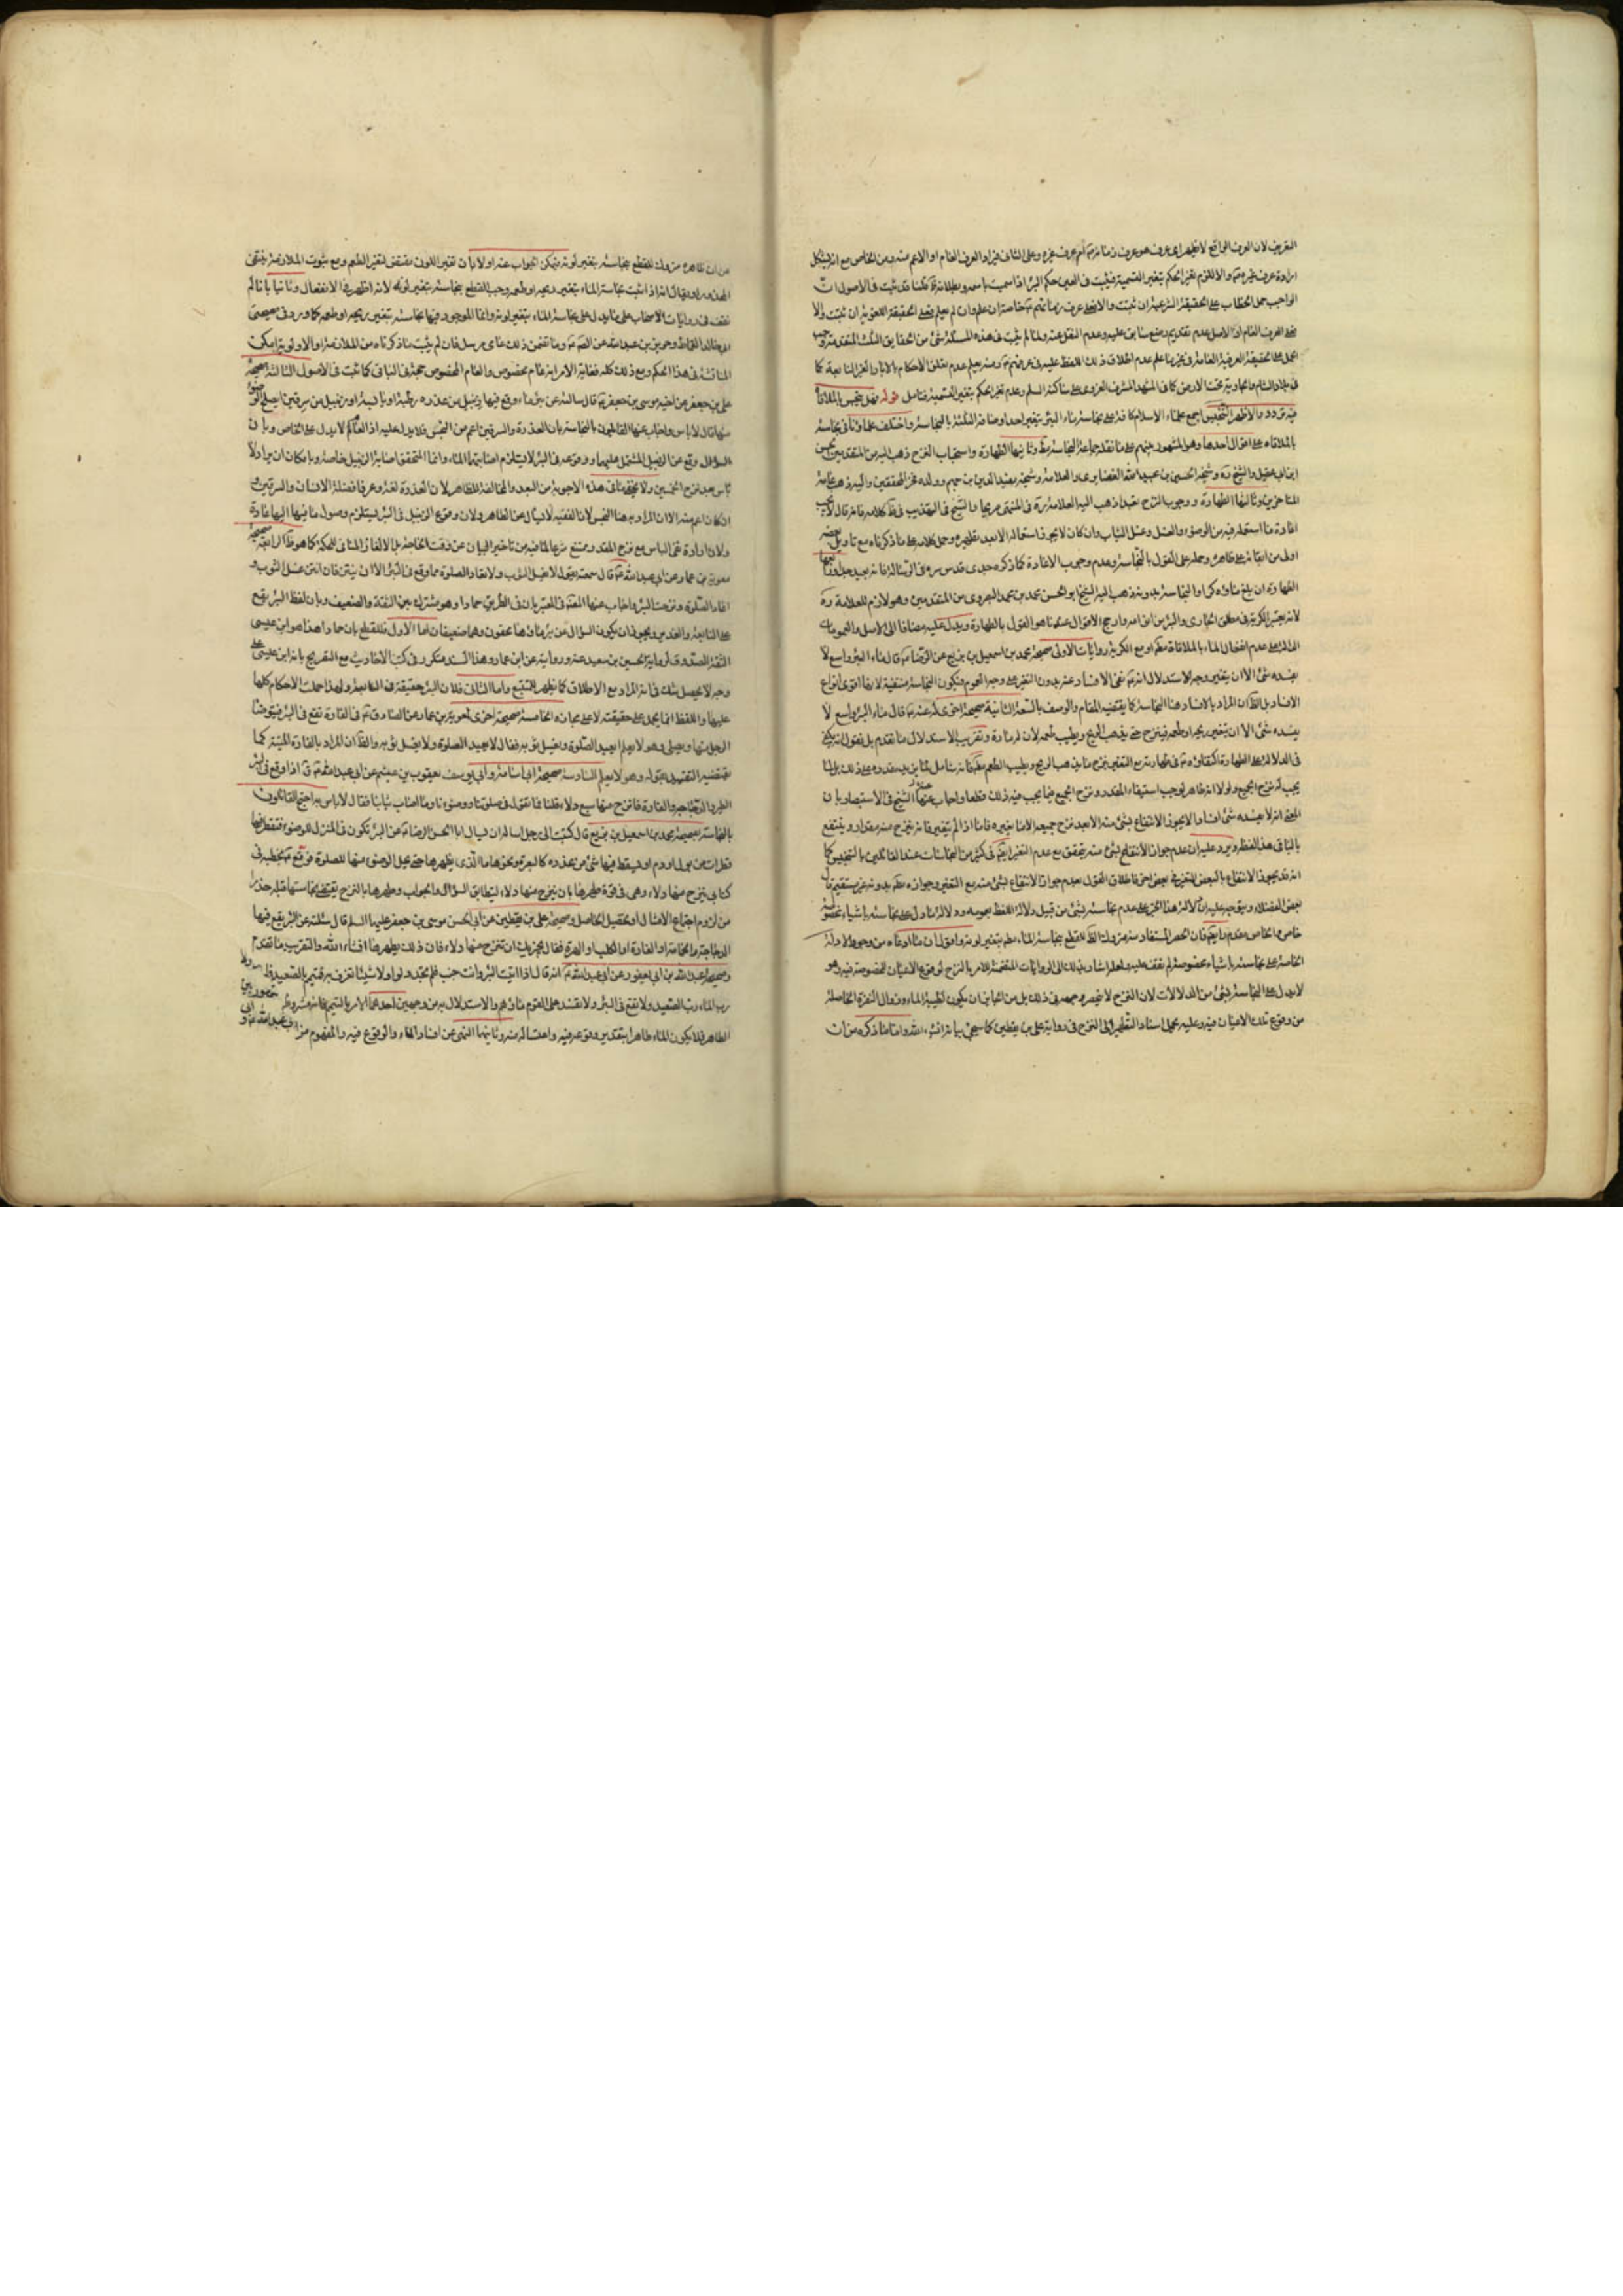 التعريف لان العرف الواقع لا يظهر اى عرف هو عرف زمانهم ام عرف غيره وعلى الثانى فيراد العرف العام او الاعم منه ومن الخاص مع انه يشكل
ارادة عرف غيرهم والا لزم تغير الحكم بتغير التسمية فيثبت فى العين حكم البئر اذا سميت باسمه وبطلانه ظ لكنا قد ثبت فى الاصول ان
الواجب حمل الخطاب على الحقيقة الشرعية ان ثبتت والا فعلى عرف زمانهم خاصة ان علم وان لم يعلم فعلى الحقيقة اللغوية ان ثبتت والا
فعلى العرف العام اذ الاصل عدم تقديم وضع سابق عليه وعدم النقل عنه ولما لم يثبت فى هذه المسئلة شئ من الحقايق الثلث المتقدمة وجب
الحمل على الحقيقة العرفية العامة فى غير ما علم عدم اطلاق ذلك اللفظ عليه فى عرفهم ومنه يعلم عدم تعلق الاحكام بالابار الغير النابعة كما
فى بلاد الشام والجارية تحت الارض كما فى المشهد المشرف الغروى على ساكنه السلم وعدم تغير الحكم بتغير التسمية فتامل قوله وهل ينجس بالملاقاة
فيه تردد والاظهر التنجيس اجمع علماء الاسلام كافة على نجاسة ماء البئر بتغير احد اوصافه الثلثة بالنجاسة واختلف علماؤنا فى نجاسته
بالملاقاة على اقوال احدها وهو المشهور بينهم على ما نقله جماعة النجاسة مط وثانيها الطهارة واستحباب النزح ذهب اليه من المتقدمين الحسن
ابن ابى عقيل والشيخ ره وشيخه الحسين بن عبيد الله الغضايرى والعلامة وشيخه مفيد الدين بن جهيم وولده فخر المحققين واليه ذهب عامة
المتاخرين وثالثها الطهارة ووجوب النزح تعبدا ذهب اليه العلامة ره فى المنتهى صريحا والشيخ فى التهذيب فى ظ كلامه فانه قال لا يجب
اعادة ما استعمله فيه من الوضوء والغسل وغسل الثياب وان كان لا يجوز استعماله الا بعد تطهيره وحمل كلامه على ما ذكرناه مع تاويل بعضه
اولى من ابقائه على ظاهره وحمله على القول بالنجاسة وعدم وجوب الاعادة كما ذكره جدى قدس سره فى الرسالة فانه بعيد جدا ورابعها
الطهارة ان بلغ ماؤه كرا والنجاسة بدونه ذهب اليه الشيخ ابو الحسن محمد بن محمد البصروى من المتقدمين وهو لازم للعلامة ره
لانه يعتبر الكرية فى مطلق الجارى والبئر من انواعه وارجح الاقوال عندنا هو القول بالطهارة ويدل عليه مضافا الى الاصل والعمومات
الدالة على عدم انفعال الماء بالملاقاة مط او مع الكرية روايات الاولى صحيحة محمد بن اسمعيل بن بزيع عن الرضا ع قال ماء البئر واسع لا
يفسده شئ الا ان يتغير وجه الاستدلال انه ع نفى الافساد عنه بدون التغير على وجه العموم فيكون النجاسة منتفية لانها اقوى انواع
الافساد بل الظ ان المراد بالافساد هنا النجاسة كما يقتضيه المقام والوصف بالسعة الثانية صحيحة اخرى له عنه ع قال ماء البئر واسع لا
يفسده شئ الا ان يتغير ريحه او طعمه فينزح حتى يذهب الريح ويطيب طعمه لان له مادة وتقريب الاستدلال ما تقدم بل نقول انه يكفى
فى الدلالة على الطهارة اكتفاؤه ع فى طهارته مع التغير بنزح ما يذهب الريح ويطيب الطعم مط فانه شامل لما يزيد مقدره على ذلك بل لما
يجب له نزح الجميع ولولا انه طاهر لوجب استيفاء المقدر ونزح الجميع فيما يجب فيه ذلك قطعا واجاب عنها الشيخ فى الاستبصار بان
المعنى انه لا يفسده شئ افسادا لا يجوز الانتفاع بشئ منه الا بعد نزح جميعه الا ما يغيره فاما اذا لم يتغير فانه ينزح منه مقدار وينتفع
بالباقى هذا لفظه ويرد عليه ان عدم جواز الانتفاع بشئ منه يتحقق مع عدم التغير ايضا فى كثير من النجاسات عند القائلين بالتنجيس كما
انه قد يجوز الانتفاع بالبعض المتغير فى بعض اخر فاطلاق القول بعدم جواز الانتفاع بشئ منه مع التغير وجوازه مط بدونه غير مستقيم قال
بعض الفضلاء ويتوجه عليه ان دلالة هذا الخبر على عدم نجاسته بشئ من قبيل دلالة اللفظ بعمومه ودلالة ما دل على نجاسته باشياء مخصوصة
خاص والخاص مقدم وايضا فان الحصر المستفاد منه متروك الظ للقطع بنجاسة الماء مط بتغير لونه واقول ان ما ادعاه من وجود الادلة
الخاصة على نجاسته باشياء مخصوصة لم نقف عليه ولعله اشار بذلك الى الروايات المتضمنة للامر بالنزح لوقوع الاعيان المخصوصة فيه وهو
لا يدل على النجاسة بشئ من الدلالات لان النزح لا ينحصر وجهه فى ذلك بل من الجايز ان يكون لطيبة الماء وزوال النفرة الحاصلة
من وقوع تلك الاعيان فيه وعليه يحمل اسناد التطهير الى النزح فى رواية على بن يقطين كما سيجئ بيانه انشاء الله واما ما ذكره من ان
من ان ظاهره متروك للقطع بنجاسته بتغير لونه فيمكن الجواب عنه اولا بان تغير اللون مقتض لتغير الطعم ومع ثبوت الملازمة ينتفى
المحذور او يقال انه اذا ثبت نجاسة الماء بتغير ريحه او طعمه وجب القطع بنجاسته بتغير لونه لانه اظهر فى الانفعال وثانيا بانا لم
نقف فى روايات الاصحاب على ما يدل على نجاسة الماء بتغير لونه وانما الموجود فيها نجاسته بتغير ريحه او طعمه كما ورد فى صحيحتى
ابى خالد القماط وحريز بن عبد الله عن الصادق ع وما تضمن ذلك عامى مرسل فان لم يثبت ما ذكرناه من الملازمة او الاولوية امكن
المناقشة فى هذا الحكم ومع ذلك كله فغاية الامر انه عام مخصوص والعام المخصوص حجة فى الباقى كما ثبت فى الاصول الثالثة صحيحة
على بن جعفر عن اخيه موسى بن جعفر ع قال سالته عن بئر ماء وقع فيها زنبيل من عذرة رطبة او يابسة او زنبيل من سرقين ايصلح الوضوء
منها قال لا باس واجاب عنها القائلون بالنجاسة بان العذرة والسرقين اعم من النجس فلا يدل عليه اذ العام لا يدل على الخاص وبان
السؤال وقع عن الزنبيل المشتمل عليهما ووقوعه فى البئر لا يستلزم اصابتهما الماء وانما المتحقق اصابة الزنبيل خاصة وبامكان ان يراد لا
باس بعد نزح الخمسين ولا يخفى ما فى هذه الاجوبة من البعد والمخالفة للظاهر لان العذرة لغة وعرفا فضلة الانسان والسرقين
ان كان اعم منه الا ان المراد به هنا النجس لان الفقيه لا يسال عن الطاهر ولان وقوع الزنبيل فى البئر يستلزم وصول ما فيها اليها عادة
ولان ارادة نفى الباس مع نزح المقدر ممتنع شرعا لما فيه من تاخير البيان عن وقت الحاجة بل الالغاز المنافى للحكمة كما هو ظ الرابعة صحيحة
معوية بن عمار عن ابى عبد الله ع قال سمعته يقول لا يغسل الثوب ولا تعاد الصلوة مما وقع فى البئر الا ان ينتن فان انتن غسل الثوب و
اعاد الصلوة ونزحت البئر واجاب عنها المعتبر فى المعتبر بان فى الطريق حمادا وهو مشترك بين الثقة والضعيف وبان لفظ البئر يقع
على النابعة والغدير ويجوز ان يكون السؤال عن بئر ماؤها محقون وهما ضعيفان اما الاول فللقطع بان حمادا هذا هو ابن عيسى
الثقة الصدوق لرواية الحسين بن سعيد عنه وروايته عن ابن عمار وهذا السند متكرر فى كتب الاحاديث مع التصريح بانه ابن عيسى على
وجه لا يحصل شك فى انه المراد مع الاطلاق كما يظهر للمتتبع واما الثانى فلان البئر حقيقة فى النابعة ولهذا حملت الاحكام كلها
عليها واللفظ انما يحمل على حقيقته لا على مجازه الخامسة صحيحة اخرى لمعوية بن عمار عن الصادق ع فى الفارة تقع فى البئر فيتوضا
الرجل منها ويصلى وهو لا يعلم ايعيد الصلوة ويغسل ثوبه فقال لا يعيد الصلوة ولا يغسل ثوبه والظ ان المراد بالفارة الميتة كما
يقتضيه التقييد بقوله وهو لا يعلم السادسة صحيحة ابى اسامة وابى يوسف يعقوب بن عيثم عن ابى عبد الله ع قال اذا وقع فى البئر
الطير والدجاجة والفارة فانزح منها سبع دلاء قلنا فما تقول فى صلوتنا ووضوءنا وما اصاب ثيابنا فقال لا باس به احتج القائلون
بالنجاسة بصحيحة محمد بن اسمعيل بن بزيع قال كتبت الى رجل اساله ان يسال ابا الحسن الرضا ع عن البئر تكون فى المنزل للوضوء فيقطر فيها
قطرات من بول او دم او يسقط فيها شئ من عذرة كالبعرة ونحوها ما الذى يطهرها حتى يحل الوضوء منها للصلوة فوقع ع بخطه فى
كتابى ينزح منها دلاء وهى فى قوة طهرها بان ينزح منها دلاء ليتطابق السؤال والجواب وطهرها بالنزح يقتضى نجاستها قبله حذرا
من لزوم اجتماع الامثال او تحصيل الحاصل وصحيحة على بن يقطين عن ابى الحسن موسى بن جعفر عليهما السلم قال سئلته عن البئر يقع فيها
الدجاجة والحمامة او الفارة او الكلب او الهرة فقال يجزيك ان تنزح منها دلاء فان ذلك يطهرها انشاء الله والتقريب ما تقدم
وصحيحة عبد الله بن ابى يعفور عن ابى عبد الله ع انه قال اذا اتيت البئر وانت جنب فلم تجد دلوا ولا شيئا تغرف به فتيمم بالصعيد فان
رب الماء رب الصعيد ولا تقع فى البئر ولا تفسد على القوم ماءهم والاستدلال به من وجهين احدهما الامر بالتيمم فانه مشروط
الطاهر فلا يكون الماء طاهرا بتقدير وقوعه فيه واغتساله منه وثانيهما النهى عن افساد الماء والوقوع فيه والمفهوم من